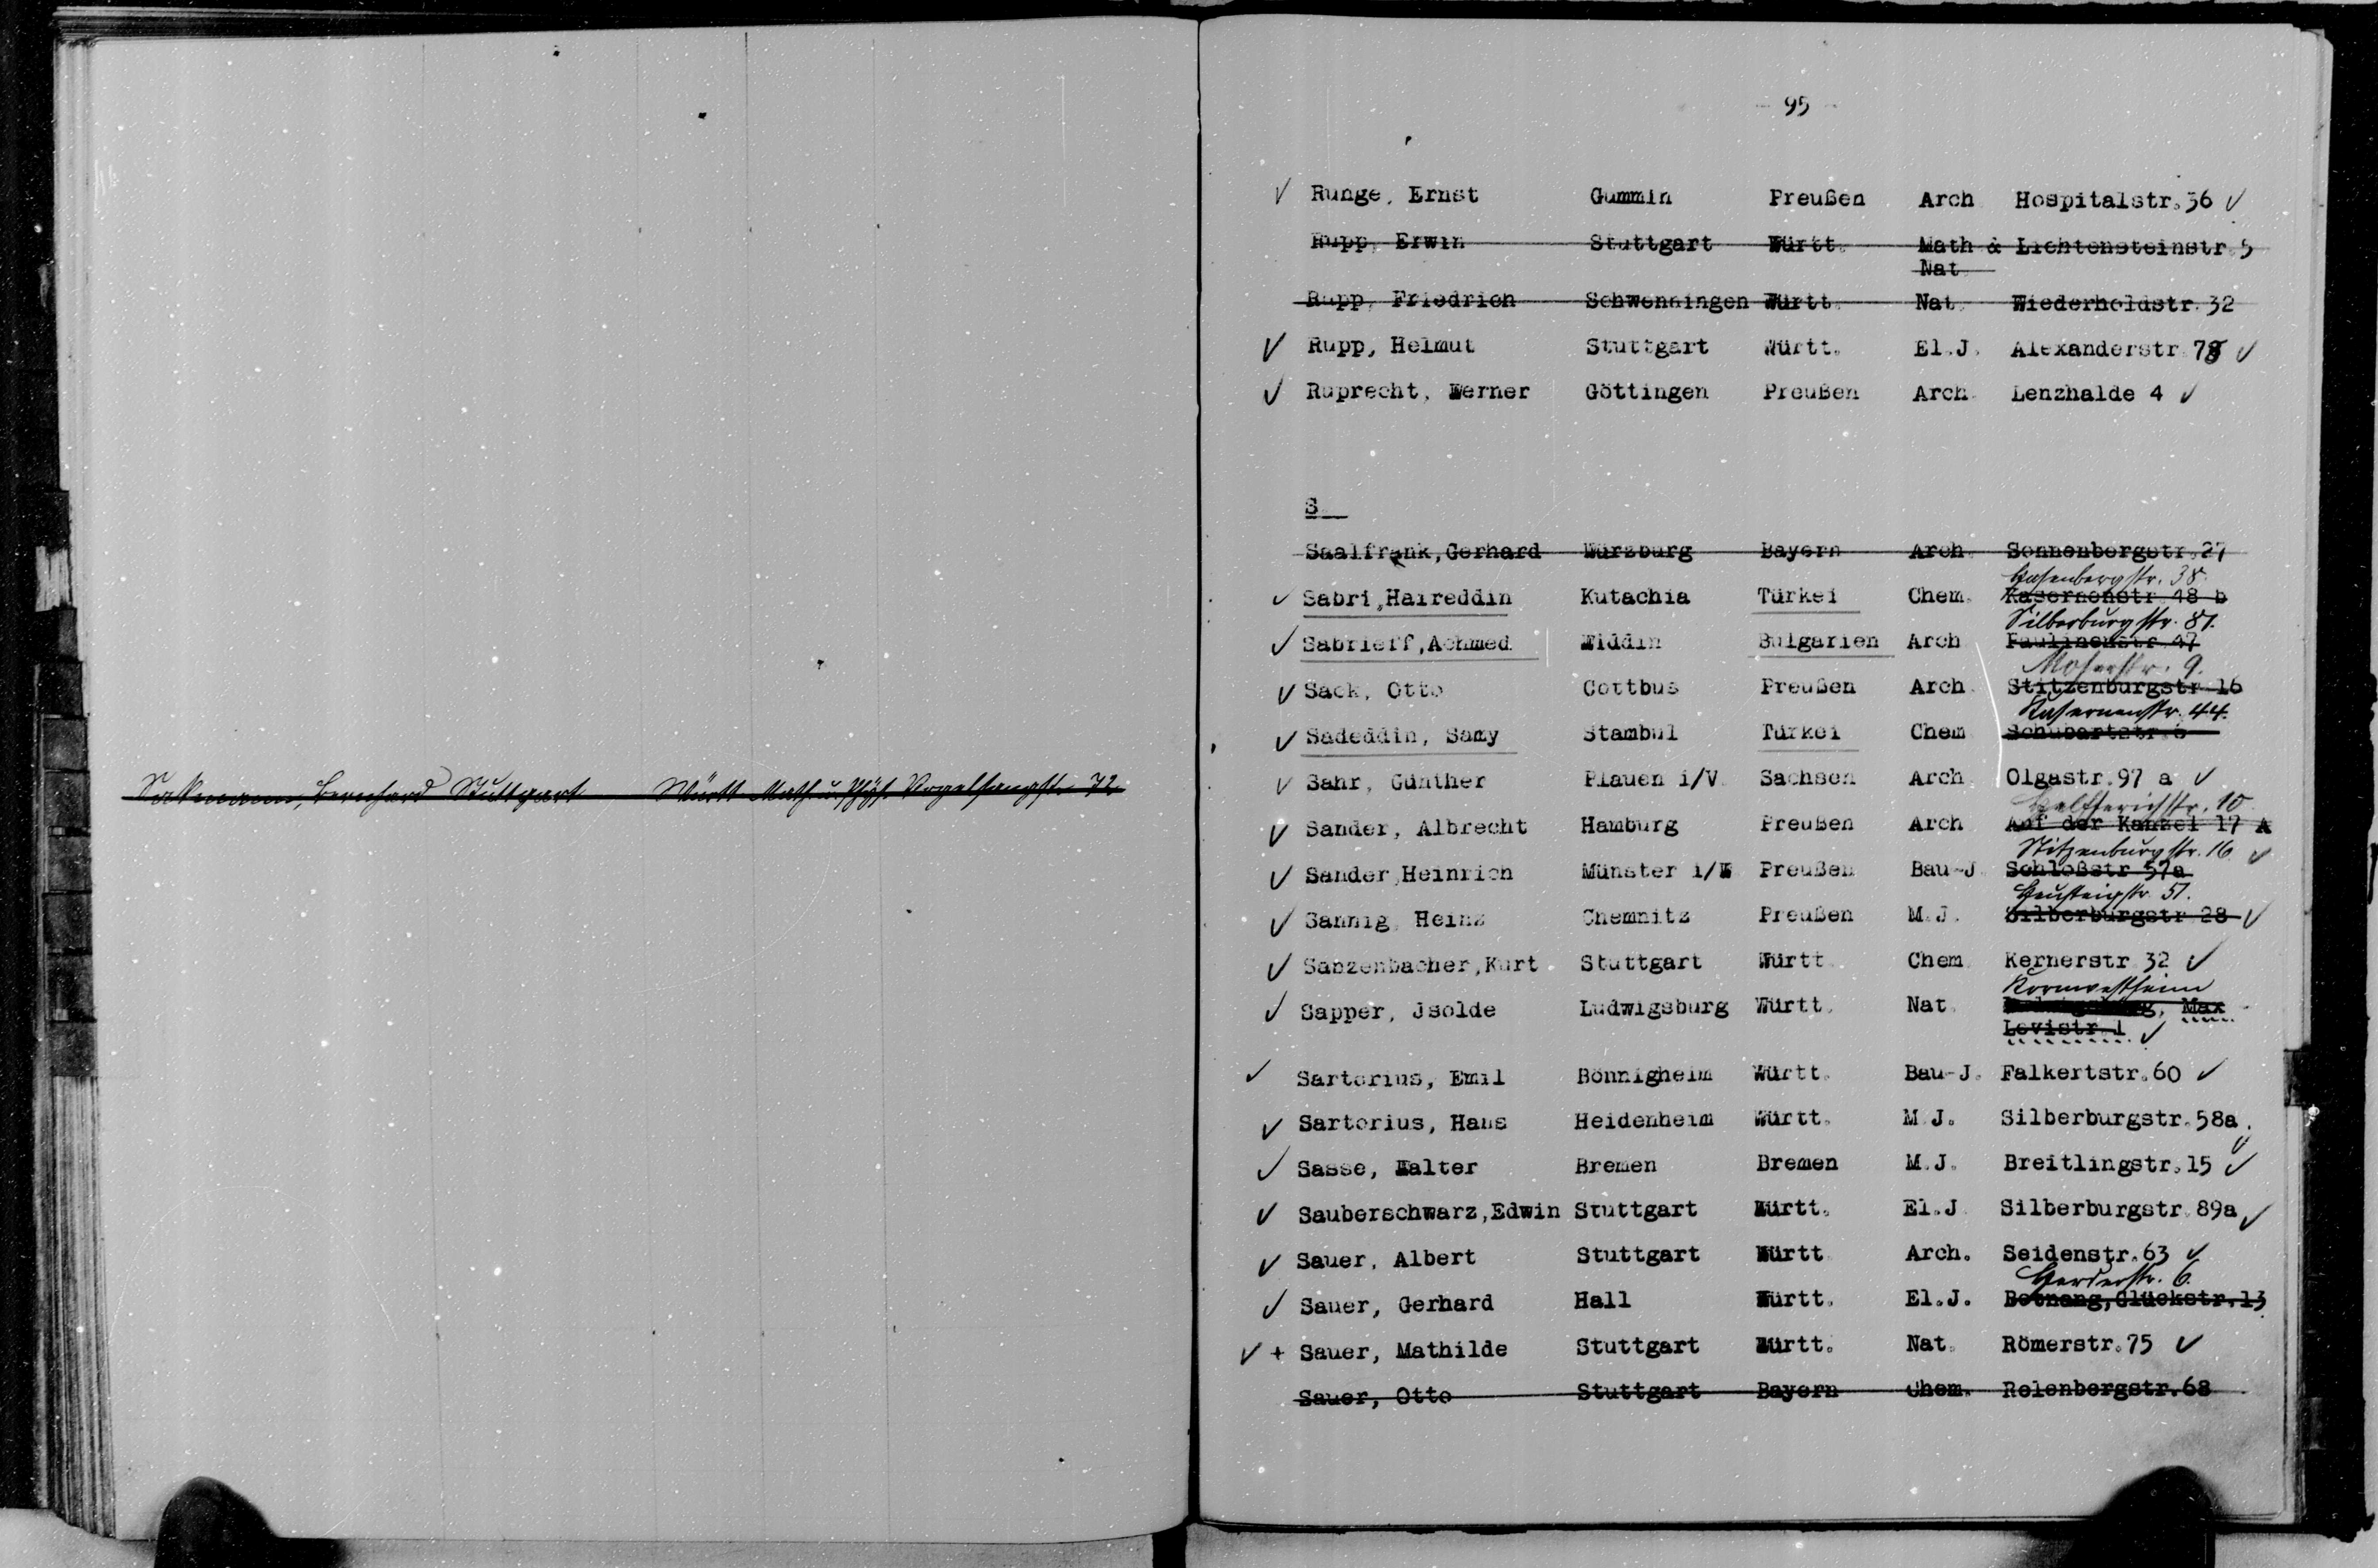 Sakmann, Bernhard Stuttgart Württ Math u. Phys. Vogelsangstr. 72
- 95 -
Runge, Ernst Gummin Preußen Arch Hospitalstr.36
Rupp, Erwin Stuttgart Württ. Math & Lichtensteinstr.5
Nat.
Rupp, Friedrich Schwenningen Württ. Nat. Wiederholdstr.32
Rupp, Helmut Stuttgart Württ. El.J. Alexanderstr.
Ruprecht, Werner Göttingen Preußen Arch. Lenzhalde 4
S
Saalfrank,Gerhard Würzburg Bayern Arch. Sonnenbergstr.27
Hasenbergstr. 38.
Sabri,Haireddin Kutachia Türkei Chem. Kasernenstr.48 b
Silberburgstr. 81.
Sabrieff,Achmed Widdin Bulgarien Arch Paulinenstr.47
Moserstr. 9.
Sack, Otto Cottbus Preußen Arch. Stitzenburgstr.16
Kasernenstr. 44.
Sadeddin, Samy Stambul Türkei Chem Schubartstr.
Sahr, Günther Plauen i/V. Sachsen Arch. Olgastr.97 a
Helfferichstr. 10
Sander, Albrecht Hamburg Preußen Arch Auf der Kanzel 17 A
Stitzenburgstr. 16
Sander,Heinrich Münster i/W Preußen Bau-J. Schloßstr 57a
Heusteigstr. 51.
Sannig, Heinz Chemnitz Preußen M.J. Silberburgstr.28
Sanzenbacher,Kurt Stuttgart Württ. Chem. Kernerstr.32
Kornwestheim
Sapper, Jsolde Ludwigsburg Württ. Nat. Max
Levistr.1
Sartorius, Emil Bönnigheim Württ. Bau-J. Falkertstr.60
Sartorius, Hans Heidenheim Württ. M.J. Silberburgstr.58a
Sasse, Walter Bremen Bremen M.J. Breitlingstr.15
Sauberschwarz,Edwin Stuttgart Württ. El.J. Silberburgstr.89a
Sauer, Albert Stuttgart Württ Arch. Seidenstr.63
Herderstr. 6.
Sauer, Gerhard Hall Württ. El.J. Botnang,Glückstr.13
+ Sauer, Mathilde Stuttgart Württ. Nat. Römerstr.75
Sauer, Otto Stuttgart Bayern Chem. Relenbergstr.68